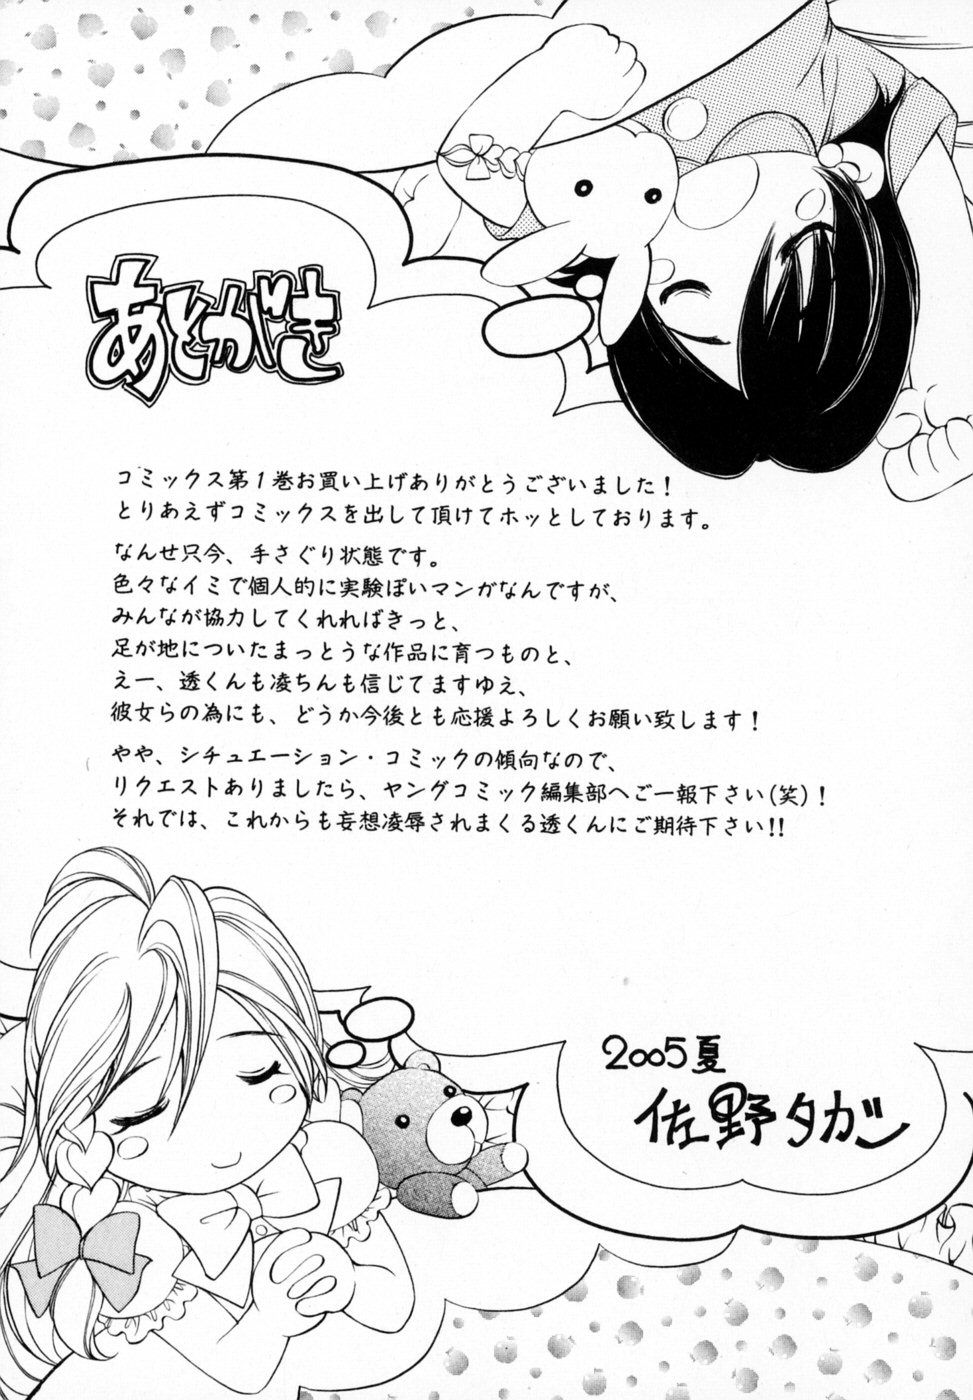 あとがき
コミックス第1巻お買い上げありがとうございました！
とりあえずコミックスを出して頂けてホッとしております。
なんせ只今、手さぐり状態です。
色々なイミで個人的に実験ぽいマンガなんですが、
みんなが協力してくれればきっと、
足が地についたまっとうな作品に育つものと、
えー、透くんも凌ちんも信じてますゆえ、
彼女らの為にも、どうか今後とも応援よろしくお願い致します！
やや、シチュエーション・コミックの傾向なので、
リクエストありましたら、ヤングコミック編集部へご一報下さい(笑)！
それでは、これからも妄想凌辱されまくる透くんにご期待下さい!!
2005夏
佐野タカシ